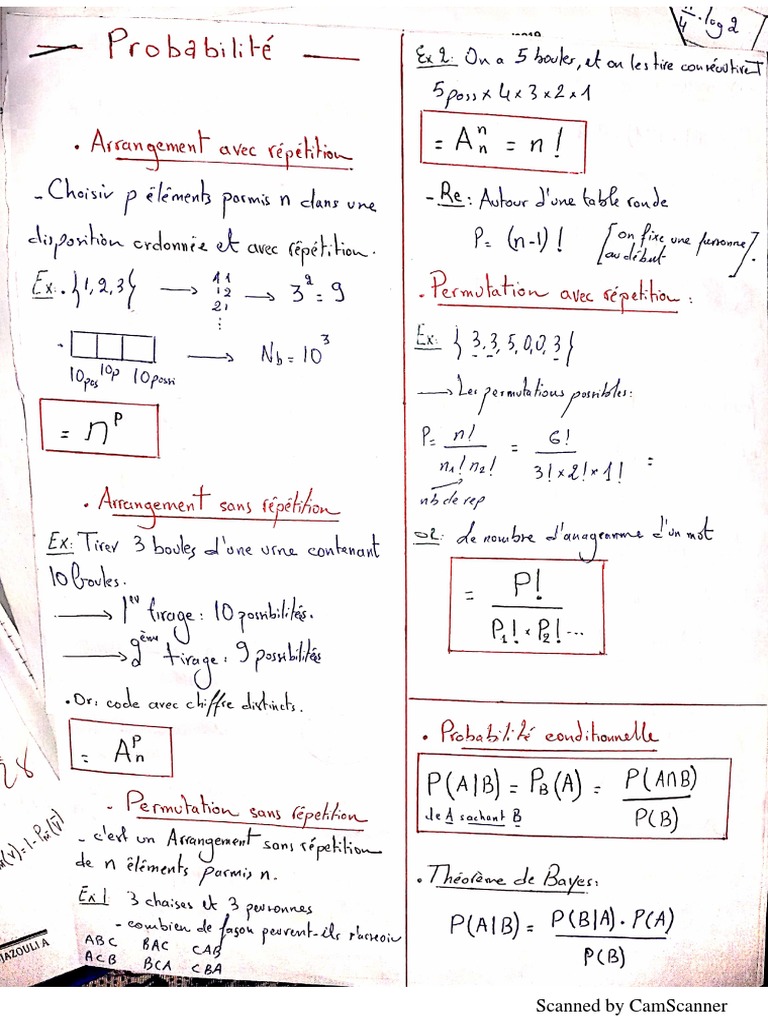 Probabilité
. Arrangement avec répétition
- Choisir p éléments parmis n dans une
disposition ordonnée et avec répétition.
Ex: . {1, 2, 3} → 11 12 21 ⋮ → 3² = 9
→ Nb = 10³
10pos 10p 10possi
= nᴾ
. Arrangement sans répétition
Ex: Tirer 3 boules d'une urne contenant
10 boules.
→ 1er tirage: 10 possibilités.
→ 2ème tirage: 9 possibilités
. Or: code avec chiffre distincts.
= Aₙᴾ
- Permutation sans répetition
- c'est un Arrangement sans répétition
de n éléments parmis n.
Ex 1 3 chaises et 3 personnes
- combien de façon peuvent-ils s'asseoir
ABC BAC CAB
ACB BCA CBA
Ex 2: On a 5 boules, et on les tire consécutivemT
5poss x 4 x 3 x 2 x 1
= Aₙⁿ = n!
- Re: Autour d'une table ronde
P= (n-1)! [on fixe une personne
au début].
. Permutation avec répetition :
Ex: {3, 3, 5, 0, 0, 3}
→ Les permutations possibles:
P= n! / n₁! n₂! = 6! / 3! x 2! x 1! =
nb de rep
02: Le nombre d'anagramme d'un mot
= P! / P₁! × P₂! ...
. Probabilité conditionnelle
P(A|B) = P_B(A) = P(A∩B) / P(B)
de A sachant B
. Théorème de Bayes:
P(A|B) = P(B|A) . P(A) / P(B)
4 . log 2
28
(V) = 1 - Pₘ(V̄)
JAZOULI A
Scanned by CamScanner